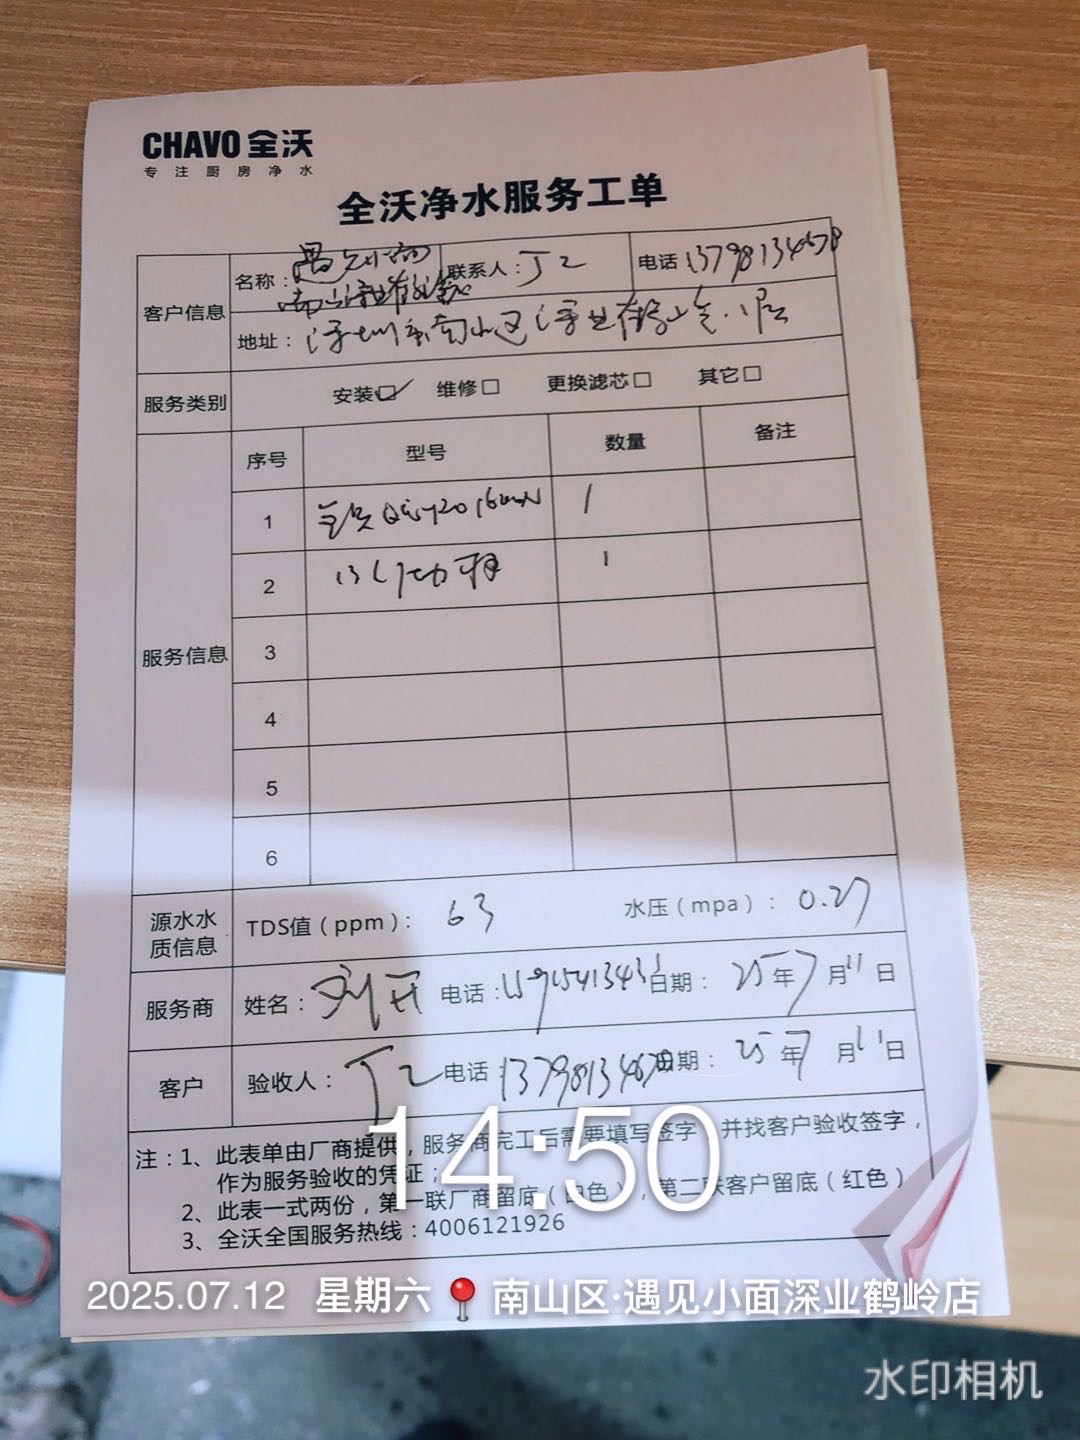 CHAVO 全沃
专注厨房净水
全沃净水服务工单
客户信息
名称：遇见小面
南山深业
联系人：丁工
电话 13798134678
地址：深圳市南山区深业
服务类别
安装☑ 维修□ 更换滤芯□ 其它□
服务信息
序号 型号 数量 备注
1 1
2 1
3
4
5
6
源水水质信息
TDS值（ppm）： 63 水压（mpa）： 0.27
服务商 姓名： 电话： 日期： 25年7月11日
客户 验收人：丁工 电话：13798134678 日期： 25年7月11日
注：1、此表单由厂商提供，服务商完工后需要填写签字，并找客户验收签字，
作为服务验收的凭证；
2、此表一式两份，第一联厂商留底（白色），第二联客户留底（红色）
3、全沃全国服务热线：4006121926
14:50
2025.07.12 星期六 南山区·遇见小面深业鹤岭店
水印相机